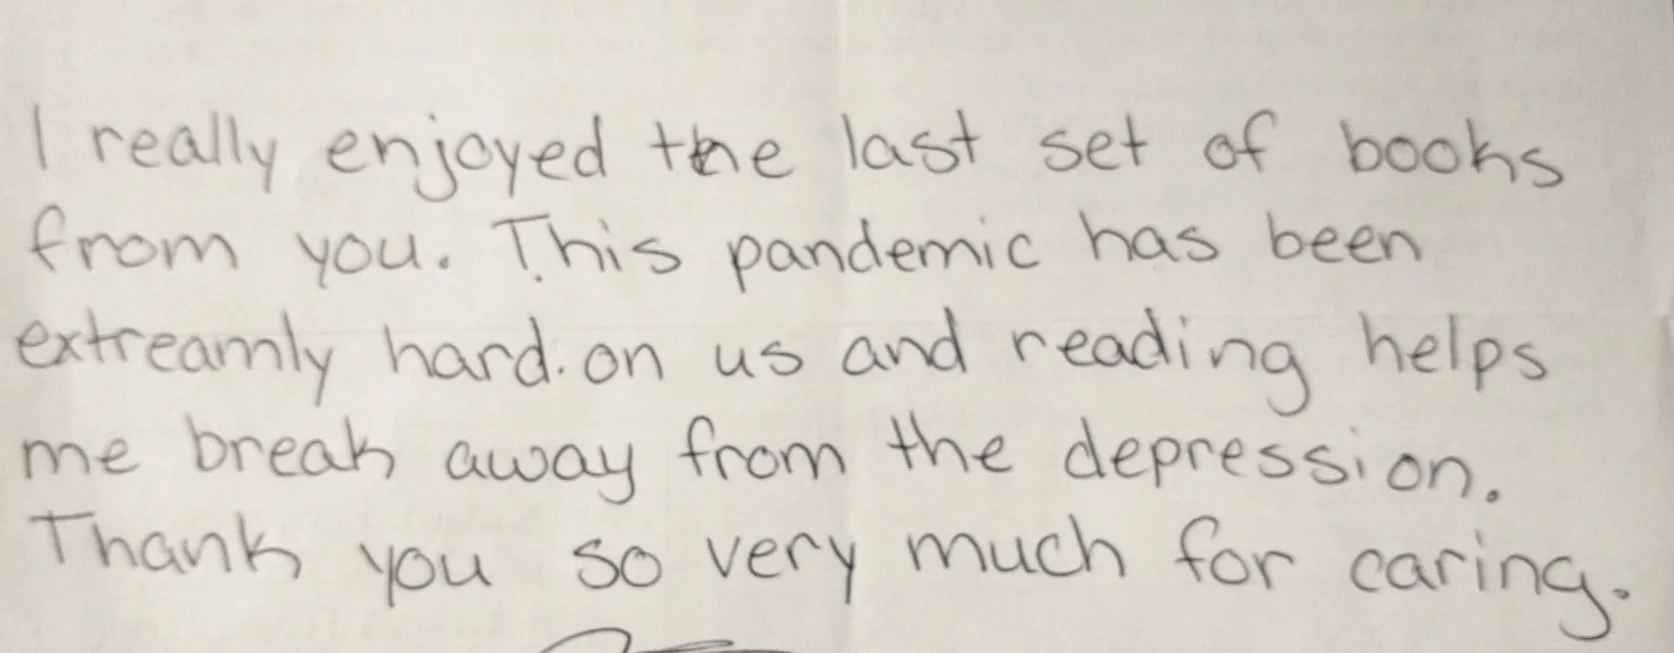 I really enjoyed the last set of books
from you. This pandemic has been
extreamly hard. on us and reading helps
me break away from the depression.
Thank you so very much for caring.